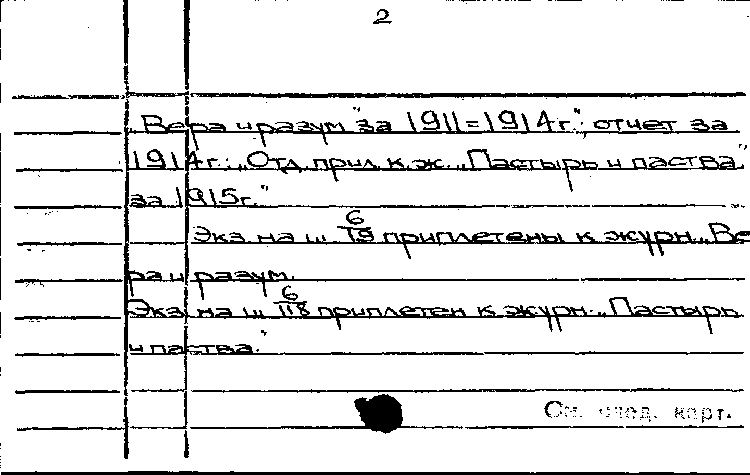 2
„Вера и разум" за 1911=1914г."; отчет за
1914г.: „Отд. прил. к ж. „Пастырь и паства"
за 1915г."
Экз. на ш. 6/19 приплетены к журн. „Ве
ра и разум.
Экз. на ш. 6/118 приплетен к журн. „Пастырь
и паства."
См. след. карт.